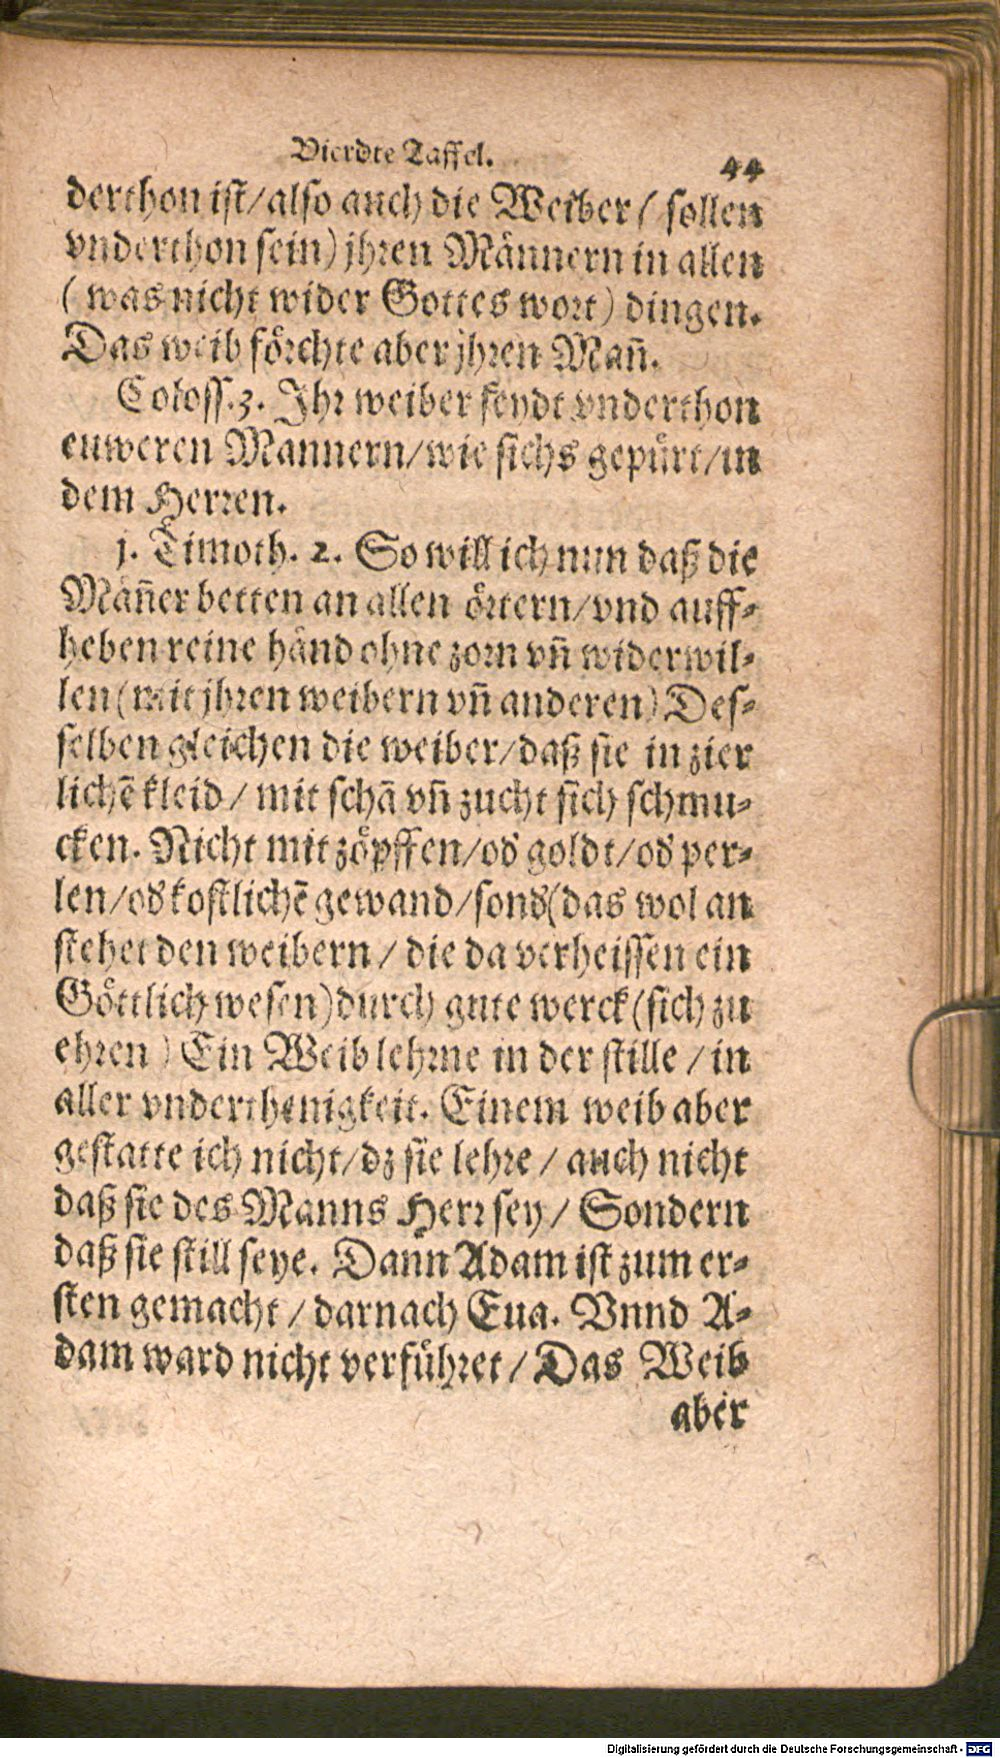 Vierdte Taffel.
44
derthon ist/also auch die Weiber / sollen
vnderthon sein) jhren Männern in allen
( was nicht wider Gottes wort) dingen.
Das weib förchte aber jhren Mañ.
Coloss.3. Ihr weiber seydt vnderthon
euweren Mannern/wie sichs gepürt/in
dem Herren.
j. Timoth. 2. So will ich nun daß die
Mäñer betten an allen örtern/vnd auff-
heben reine händ ohne zorn vñ widerwil-
len (mit jhren weibern vñ anderen) Des-
selben gleichen die weiber/daß sie in zier
lichē kleid / mit schā vñ zucht sich schmu-
cken. Nicht mit zöpffen/od goldt/od per-
len/od kostlichē gewand/sond(das wol an
stehet den weibern / die da verheissen ein
Göttlich wesen) durch gute werck (sich zu
ehren ) Ein Weib lehrne in der stille / in
aller vnderthenigkeit. Einem weib aber
gestatte ich nicht/dz sie lehre / auch nicht
daß sie des Manns Herr sey / Sondern
daß sie still seye. Dann Adam ist zum er-
sten gemacht / darnach Eua. Vnnd A-
dam ward nicht verführet / Das Weib
aber
Digitalisierung gefördert durch die Deutsche Forschungsgemeinschaft - DFG